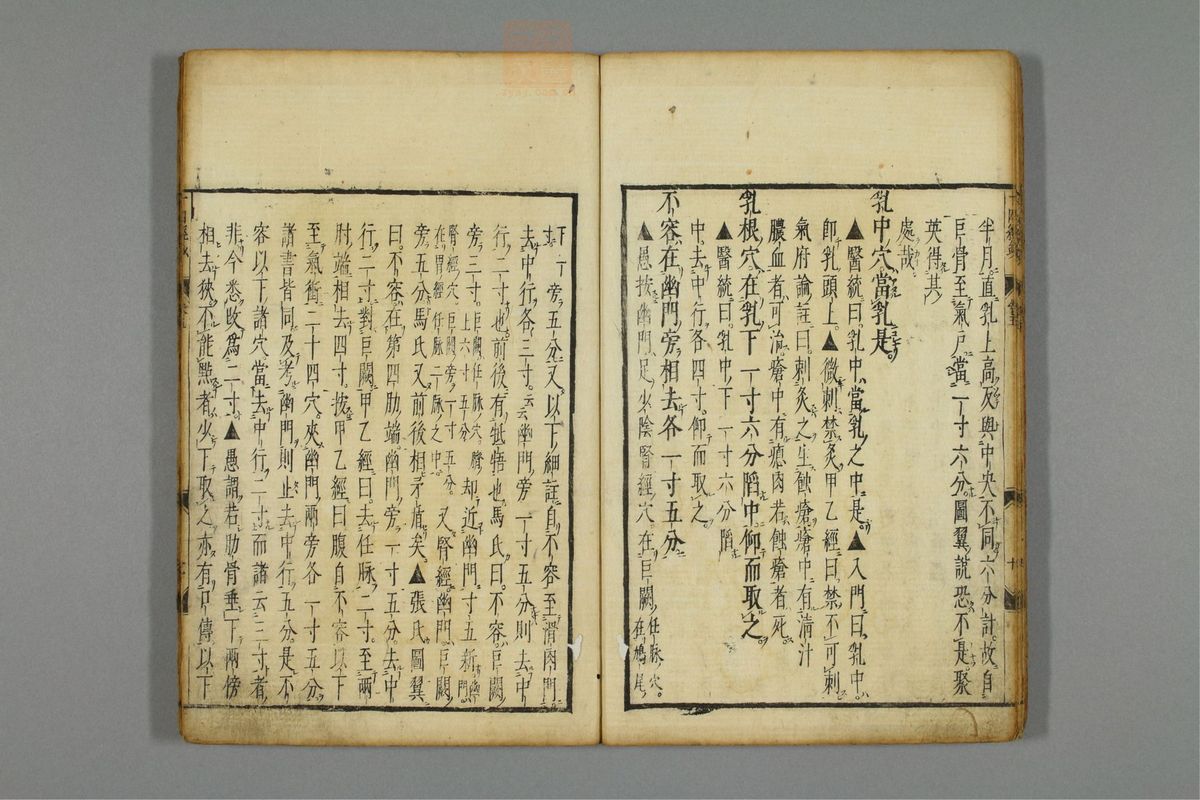 半月。直乳上高及輿中央不同六分計。故自
巨骨至氣戸當一寸六分。圖翼說恐不是聚
英得其
處哉。
乳中穴當乳是。
▲醫統曰。乳中。當乳之中是。▲入門曰。乳中。
卽乳頭上。▲微刺禁灸。甲乙經曰。禁不可刺
氣府論註曰。刺灸之生蝕瘡瘡中有清汁
膿血者。可治。瘡中有瘜肉若蝕瘡者死。
乳根穴在乳下一寸六分陷中仰而取之。
▲醫統曰。乳中下一寸六分陷
中。去中行。各四寸。仰而取之。
不容在幽門旁相去各一寸五分
▲愚按幽門。足少陰腎經穴。在巨闕。任脉穴。在鳩尾。
下一寸。旁五分。又以下細註。自不容至滑肉門。
去中行各三寸。云。幽門旁一寸五分。則去中
行。二寸也。前後有牴牾也。馬氏曰。不容。巨闕
旁三寸。巨闕。任脉穴。臍上六寸五分。却近幽門一寸五新。幽門。
腎經穴。巨闕旁一寸五分。在胃經任脉二寸之中。又腎經。幽門。巨闕
旁五分。馬氏又前後相矛盾矣。▲張氏圖翼
曰。不容在第四肋端。幽門旁一寸五分。去中
行二寸。對巨闕。甲乙經曰。去任脉二寸。至兩
肘端相去四寸。按甲乙經曰腹自不容以下
至氣衝二十四穴。夾幽門兩旁各一寸五分。
諸書皆同。及考幽門。則止去中行五分。是不
容以下諸穴當去中行二寸。而諸云三寸者。
非。今悉改爲二寸。▲愚謂。若肋骨垂下兩傍
相去狹。不能點者。少下取之。亦有口傳以下